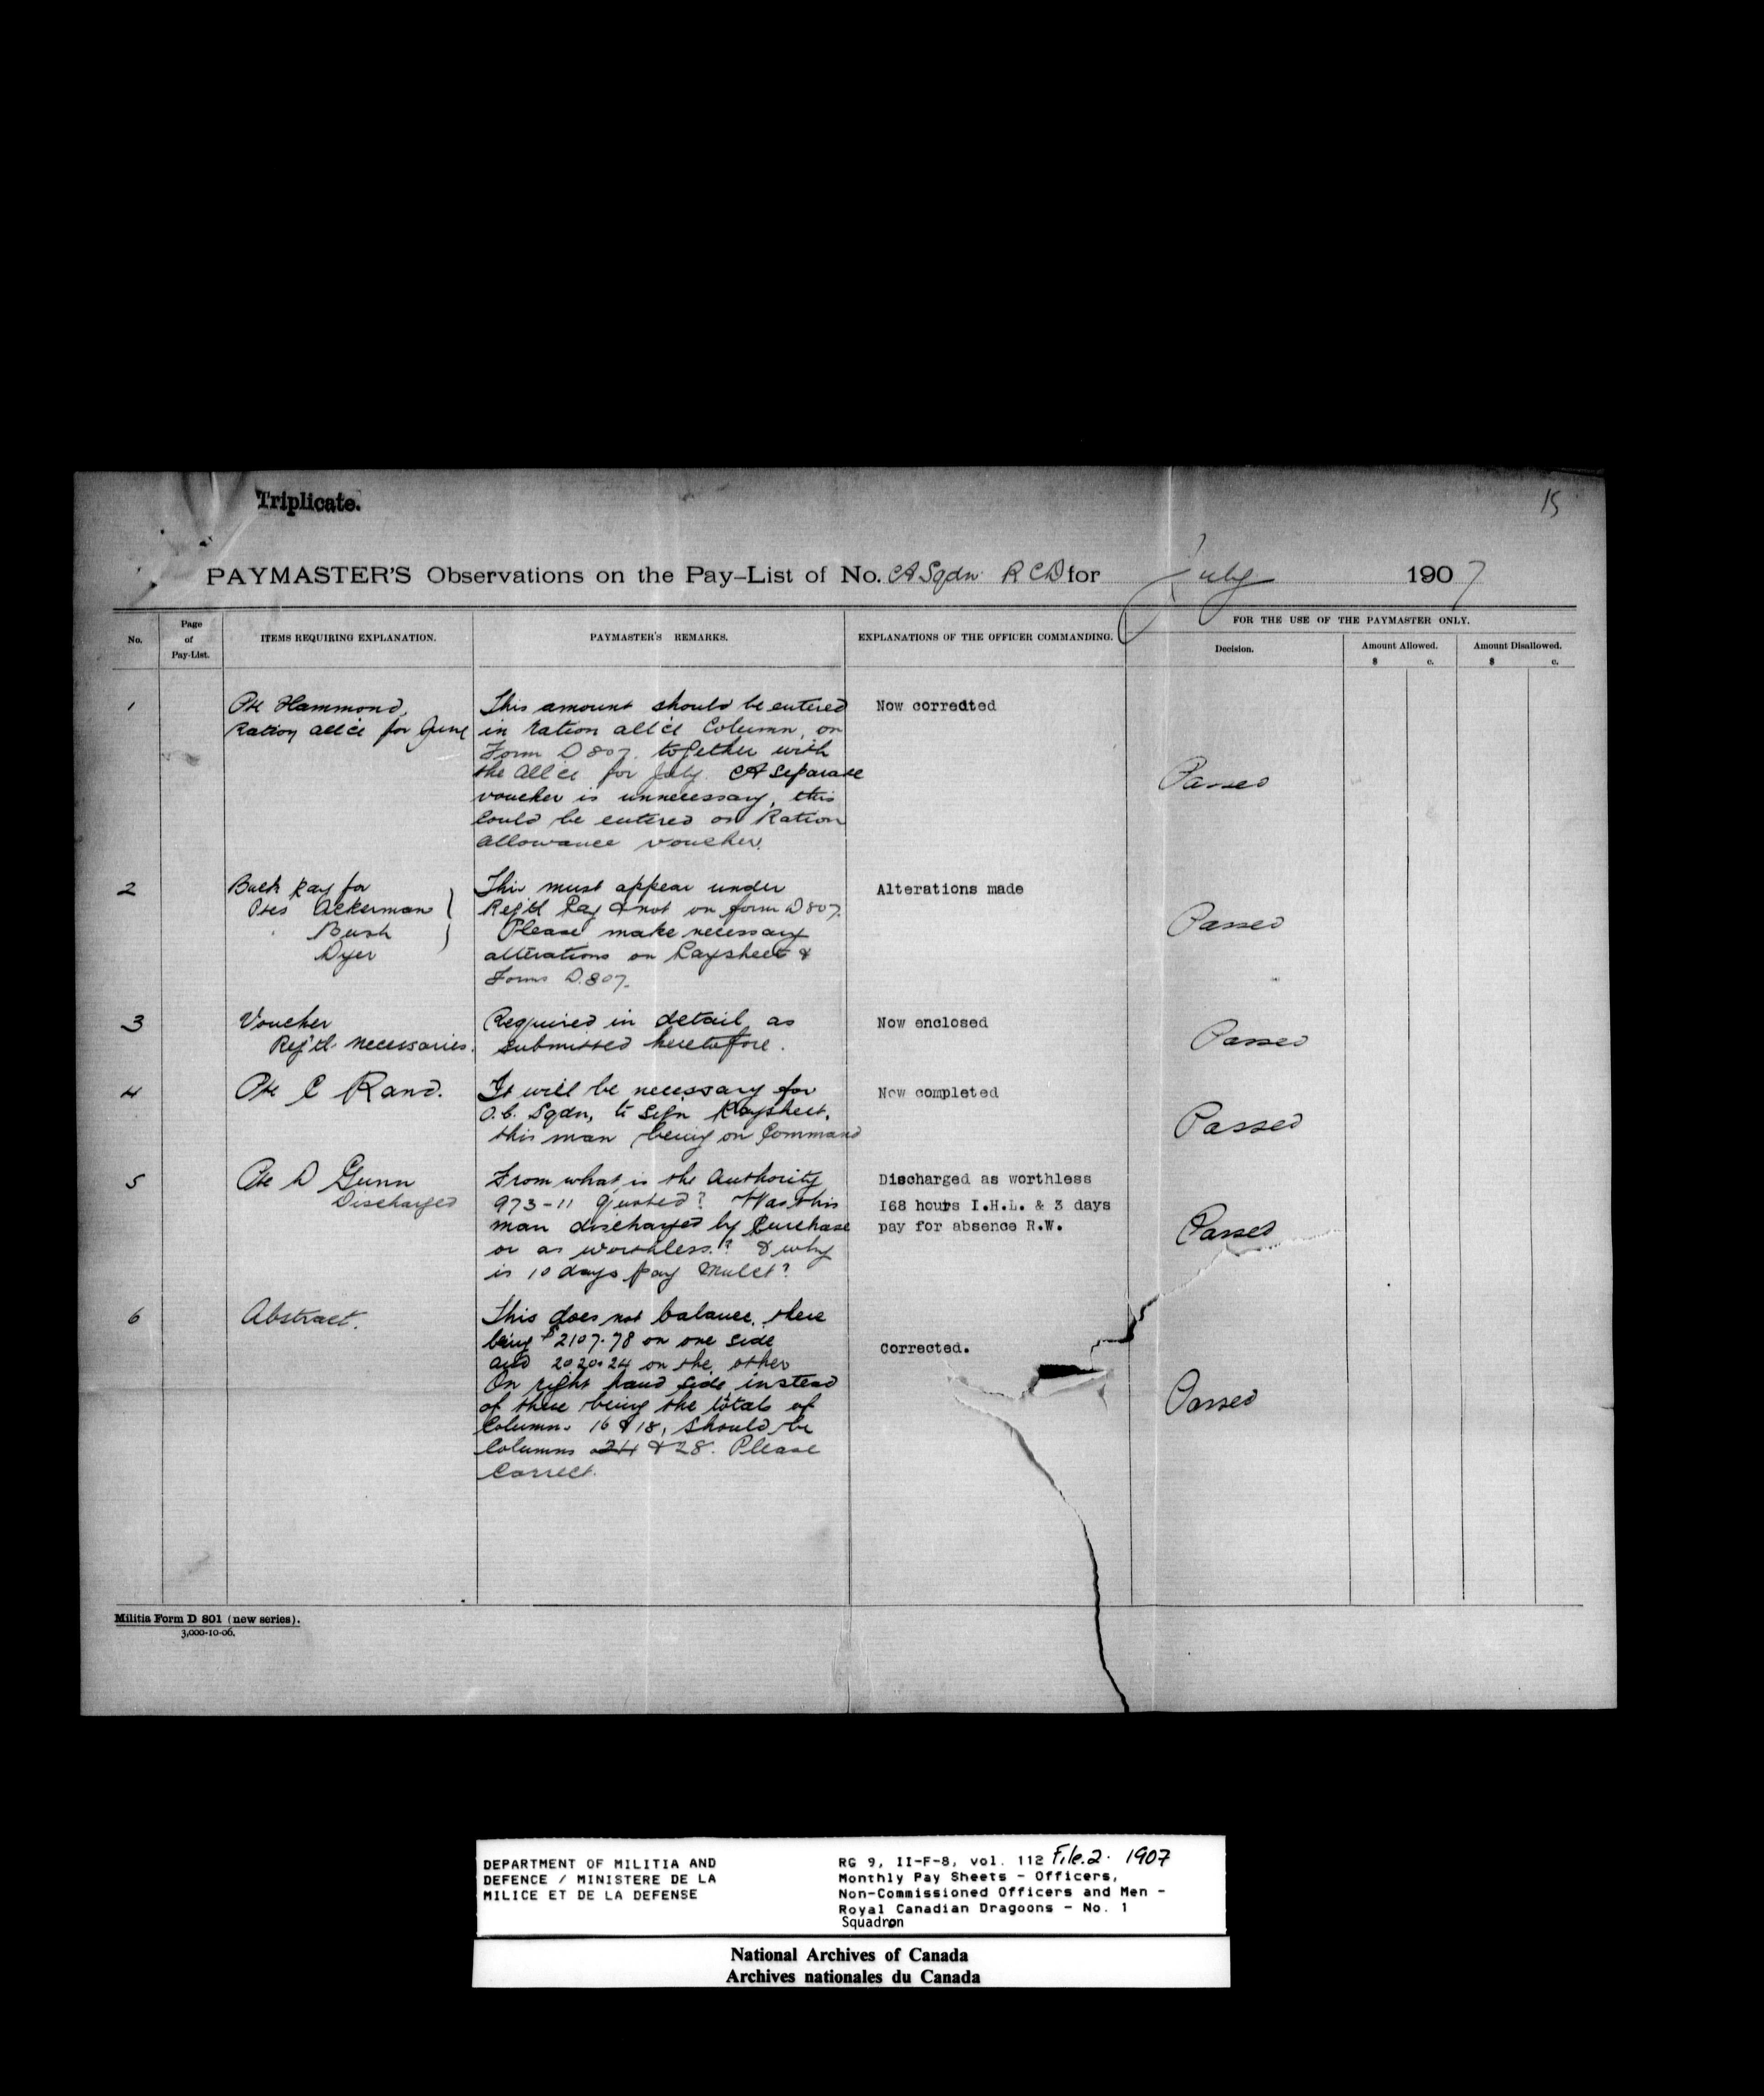 Triplicate.
15
PAYMASTER'S Observations on the Pay-List of No. A Sqdn R C D for July 1907
No.
Page of Pay-List.
ITEMS REQUIRING EXPLANATION.
PAYMASTER'S REMARKS.
EXPLANATIONS OF THE OFFICER COMMANDING.
FOR THE USE OF THE PAYMASTER ONLY.
Decision.
Amount Allowed.
$ c.
Amount Disallowed.
$ c.
1
Pte Hammond,
Ration all'ce for June
This amount should be entered
in ration all'ce Column, on
Form D 807. together with
the all'ce for July. A separate
voucher is unnecessary, this
could be entered on Ration
allowance voucher.
Now corredted
Passed
2
Back pay for
Ptes Ackerman
Bush
Dyer
This must appear under
Reg'tl Pay & not on form D 807.
Please make necessary
alterations on Paysheet &
Forms D.807.
Alterations made
Passed
3
Voucher
Reg'tl necessaries.
Required in detail as
submitted heretofore.
Now enclosed
Passed
4
Pte C Rand.
It will be necessary for
O.C. Sqdn, to sign Paysheet,
this man being on Command
Now completed
Passed
5
Pte D Gunn
Discharged
From what is the authority
973-11 quoted? Was this
man discharged by Purchase
or as worthless? & why
is 10 days pay mulct?
Discharged as worthless
168 hours I.H.L. & 3 days
pay for absence R.W.
Passed
6
Abstract.
This does not balance, there
being $2107.78 on one side
and 2020.24 on the other
On right hand side instead
of these being the totals of
Columns 16 & 18, should be
Columns 24 & 28. Please
correct.
Corrected.
Passed
Militia Form D 801 (new series).
3,000-10-06.
DEPARTMENT OF MILITIA AND
DEFENCE / MINISTERE DE LA
MILICE ET DE LA DEFENSE
RG 9, II-F-8, vol. 112 File.2. 1907
Monthly Pay Sheets - Officers,
Non-Commissioned Officers and Men -
Royal Canadian Dragoons - No. 1
Squadron
National Archives of Canada
Archives nationales du Canada